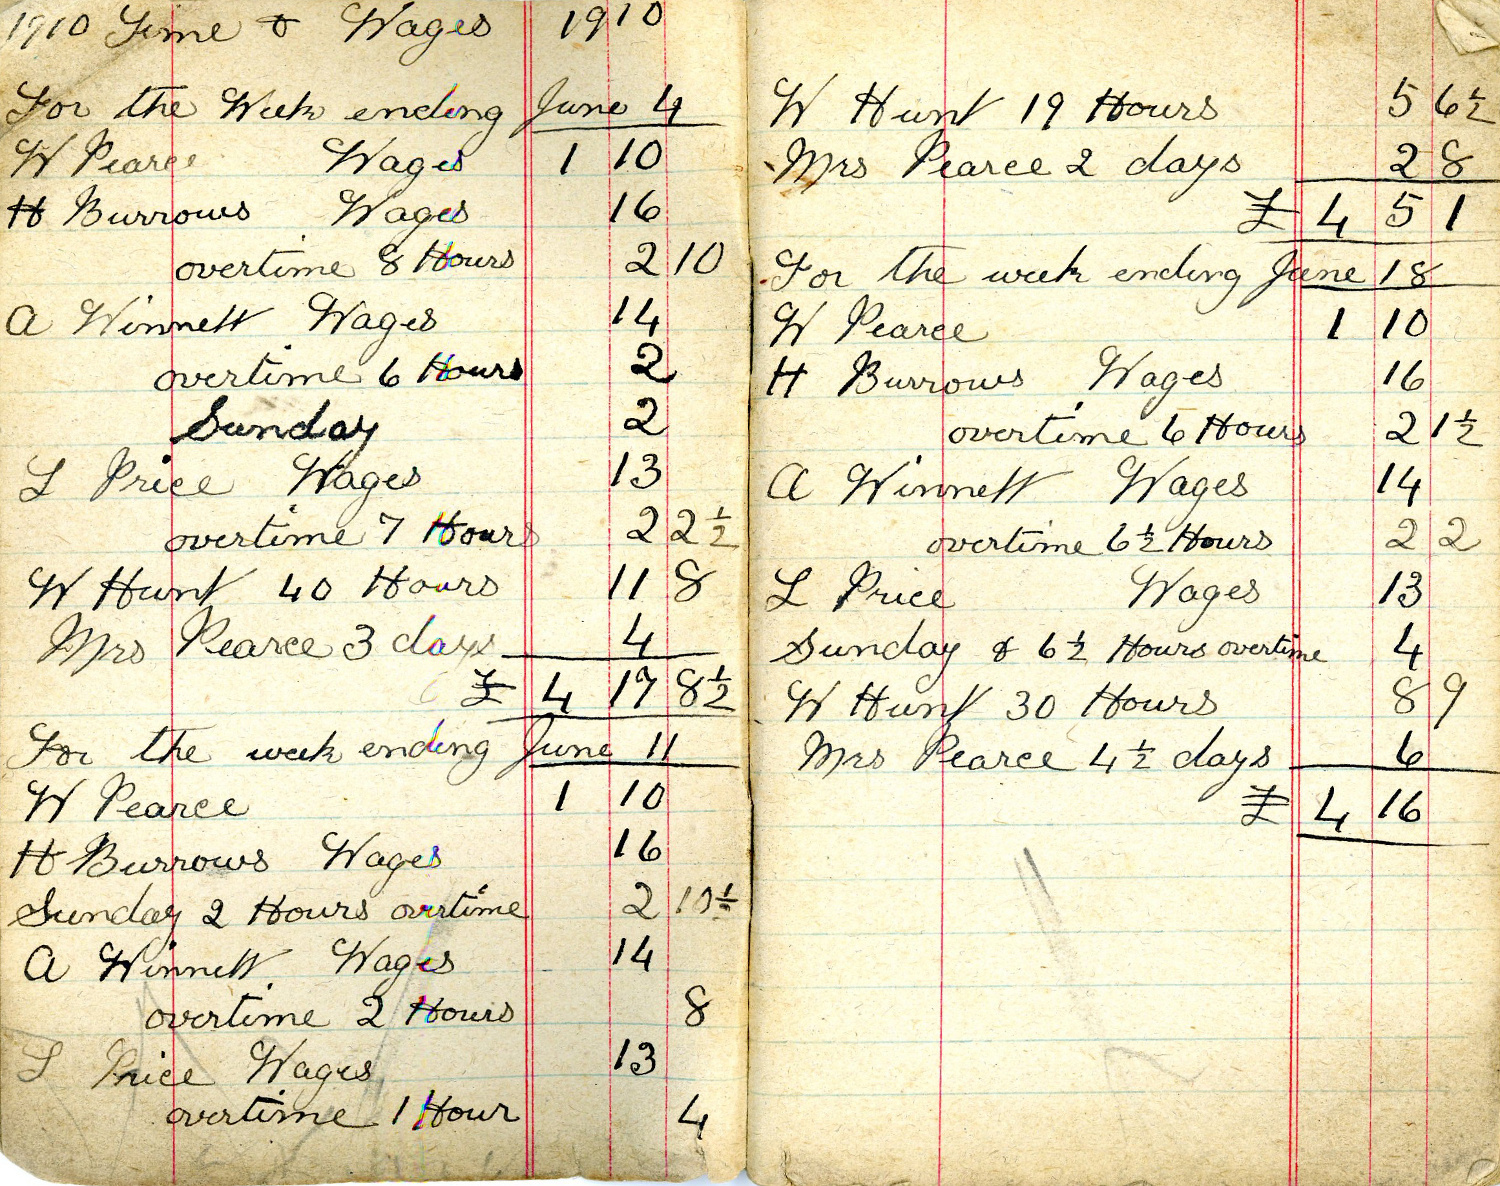 1910 Time & Wages 1910
For the Week ending June 4
W Pearce Wages 1 10
H Burrows Wages 16
overtime 8 Hours 2 10
A Winnett Wages 14
overtime 6 Hours 2
Sunday 2
L Price Wages 13
overtime 7 Hours 2 2½
W Hunt 40 Hours 11 8
Mrs Pearce 3 days 4
£ 4 17 8½
For the week ending June 11
W Pearce 1 10
H Burrows Wages 16
Sunday 2 Hours overtime 2 10½
A Winnett Wages 14
overtime 2 Hours 8
L Price Wages 13
overtime 1 Hour 4
W Hunt 19 Hours 5 6½
Mrs Pearce 2 days 2 8
£ 4 5 1
For the week ending June 18
W Pearce 1 10
H Burrows Wages 16
overtime 6 Hours 2 1½
A Winnett Wages 14
overtime 6½ Hours 2 2
L Price Wages 13
Sunday & 6½ Hours overtime 4
W Hunt 30 Hours 8 9
Mrs Pearce 4½ days 6
£ 4 16